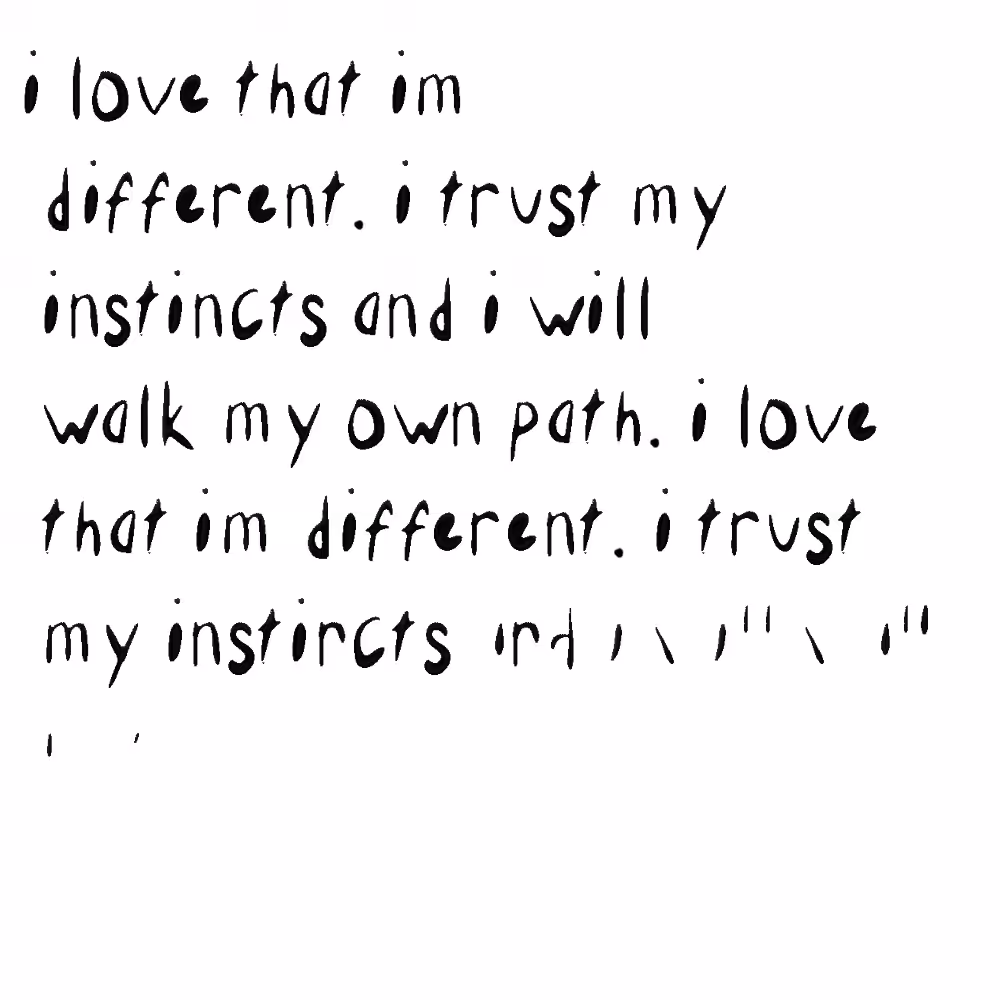 i love that im
different. i trust my
instincts and i will
walk my own path. i love
that im different. i trust
my instircts